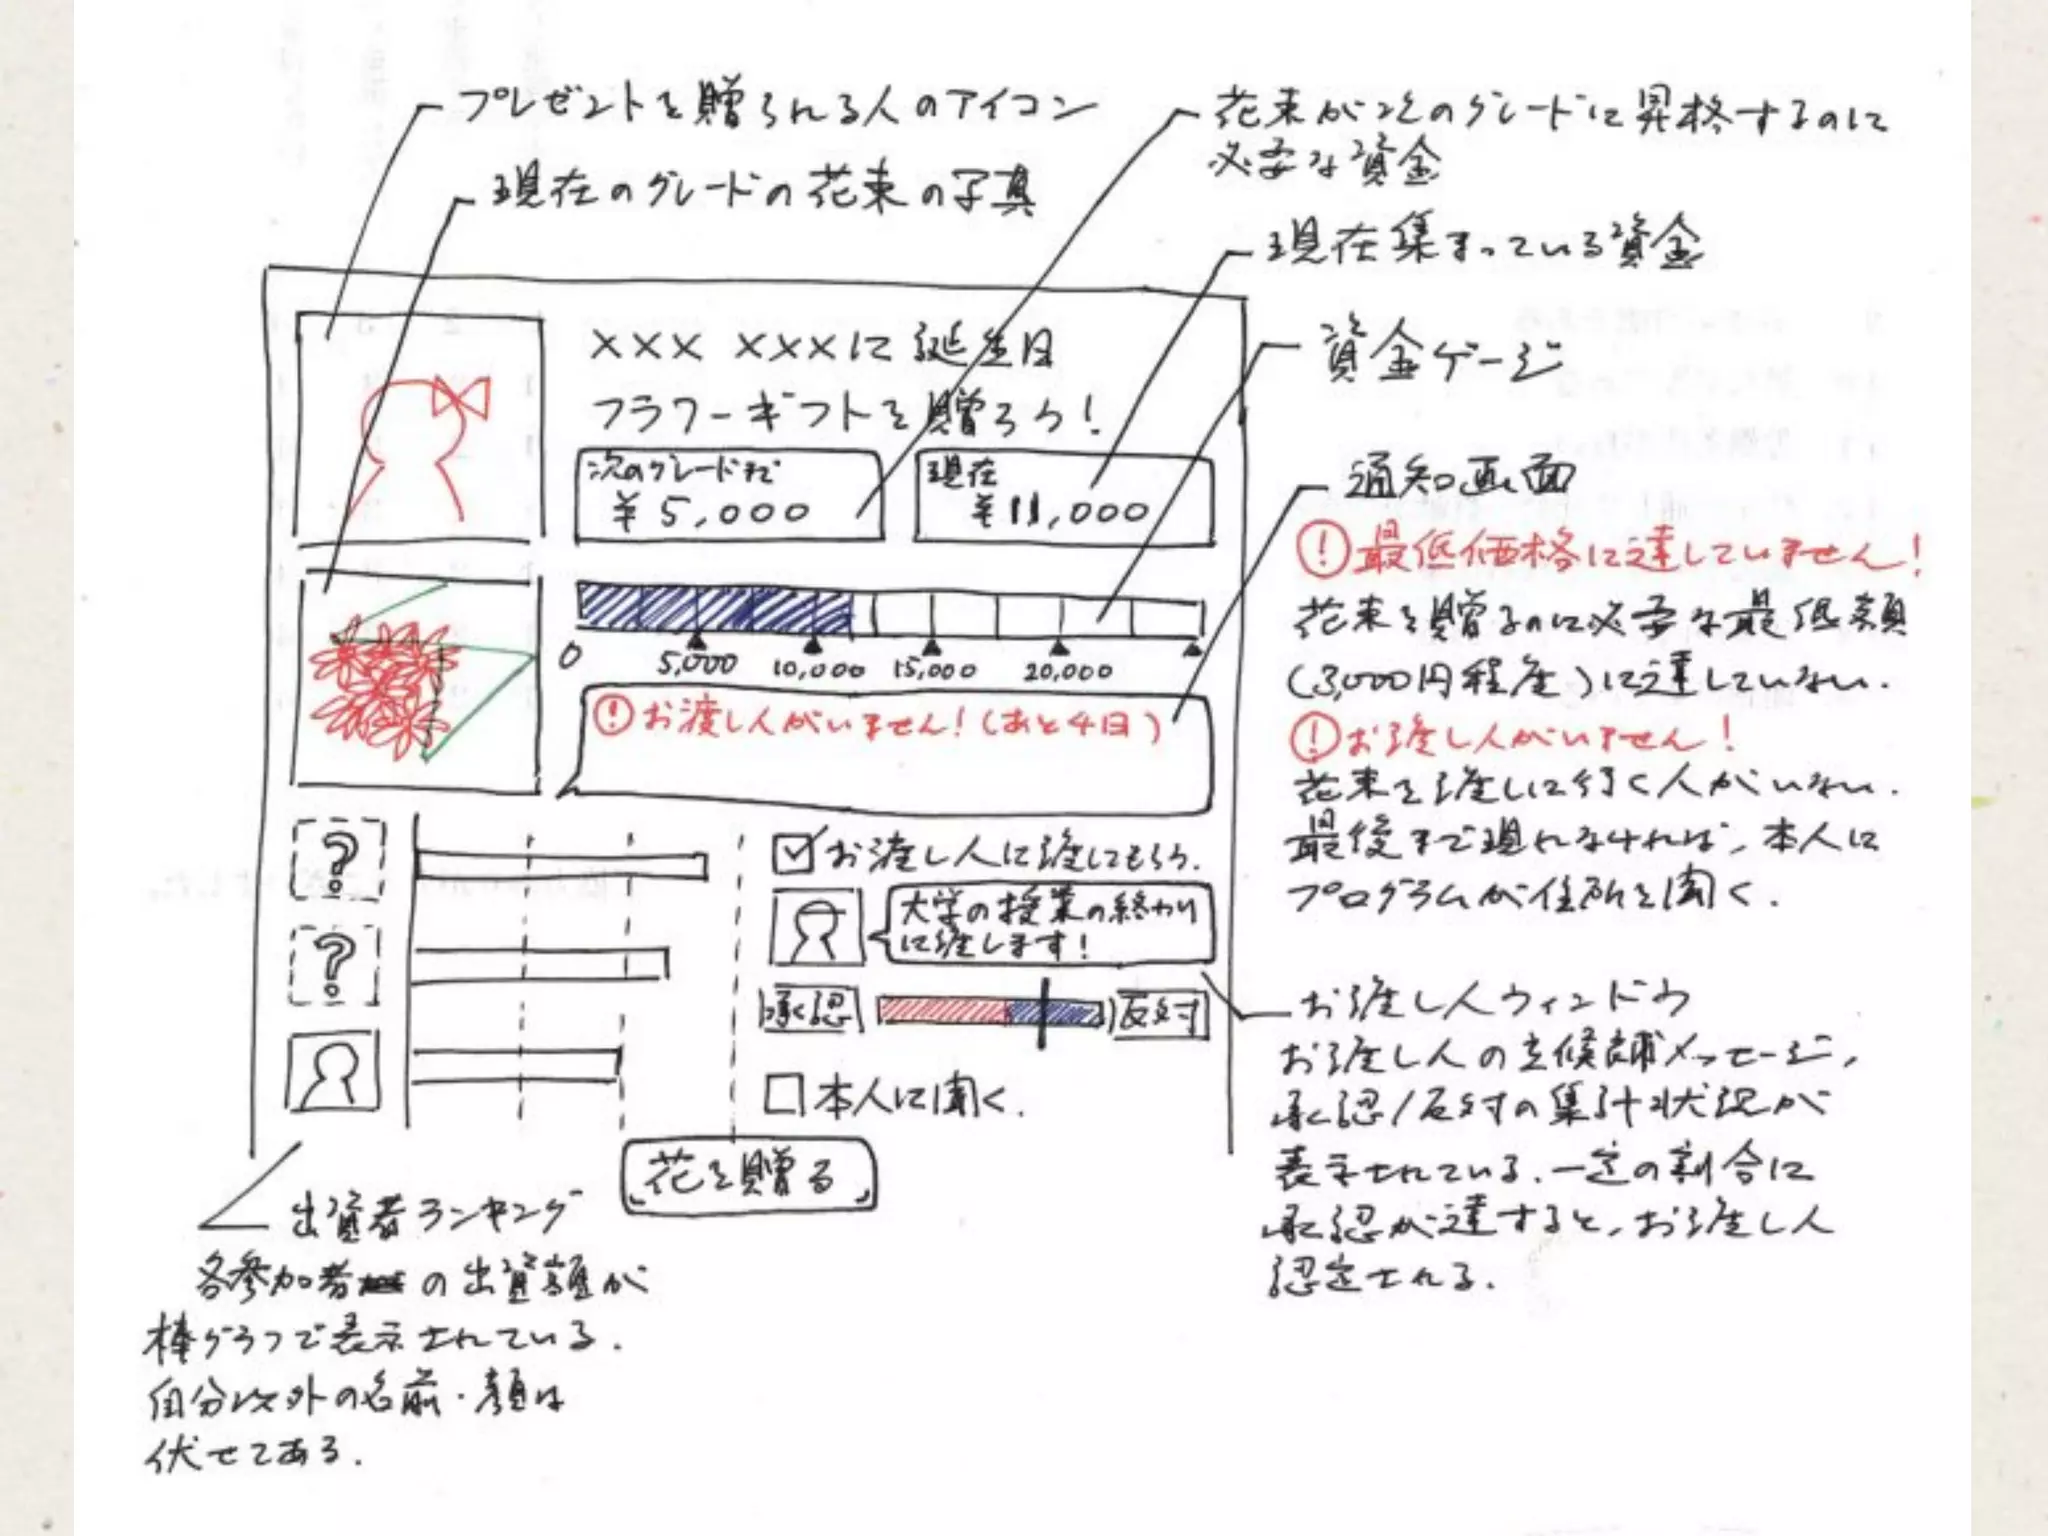 プレゼントを贈られる人のアイコン
現在のグレードの花束の写真
花束が次のグレードに昇格するのに
必要な資金
現在集まっている資金
資金ゲージ
通知画面
①最低価格に達していません!
花束を贈るのに必要な最低額
(3,000円程度)に達していない.
①お渡し人がいません!
花束を渡しに行く人がいない.
最後まで現れなければ,本人に
プログラムが住所を聞く.
お渡し人ウィンドウ
お渡し人の立候補メッセージ,
承認/反対の集計状況が
表示されている.一定の割合に
承認が達すると,お渡し人
認定される.
××× ×××に誕生日
フラワーギフトを贈ろう!
次のグレードまで
¥5,000
現在
¥11,000
0 5,000 10,000 15,000 20,000
!お渡し人がいません!(あと4日)
?
?
お渡し人に渡してもらう.
大学の授業の終わり
に渡します!
承認
反対
本人に聞く.
花を贈る
出資者ランキング
各参加者の出資額が
棒グラフで表示されている.
自分以外の名前・顔は
伏せてある.